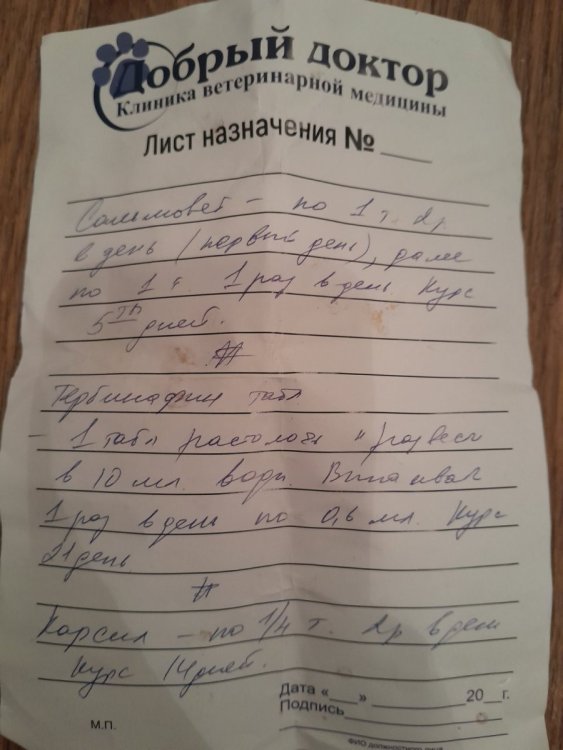 Добрый доктор
Клиника ветеринарной медицины
Лист назначения № ____
– по 1 т. 2р
в день (первый день), далее
по 1 т 1 раз в день. Курс
5ти дней.
Тербинафин табл
– 1 табл растолочь и развести
в 10 мл. воды. Выпаивать
1 раз в день по 0,6 мл. Курс
21 день
Карсил – по 1/4 т. 2р в день
Курс 14 дней.
Дата «___» ________ 20__г.
Подпись
М.П.
ФИО должностного лица